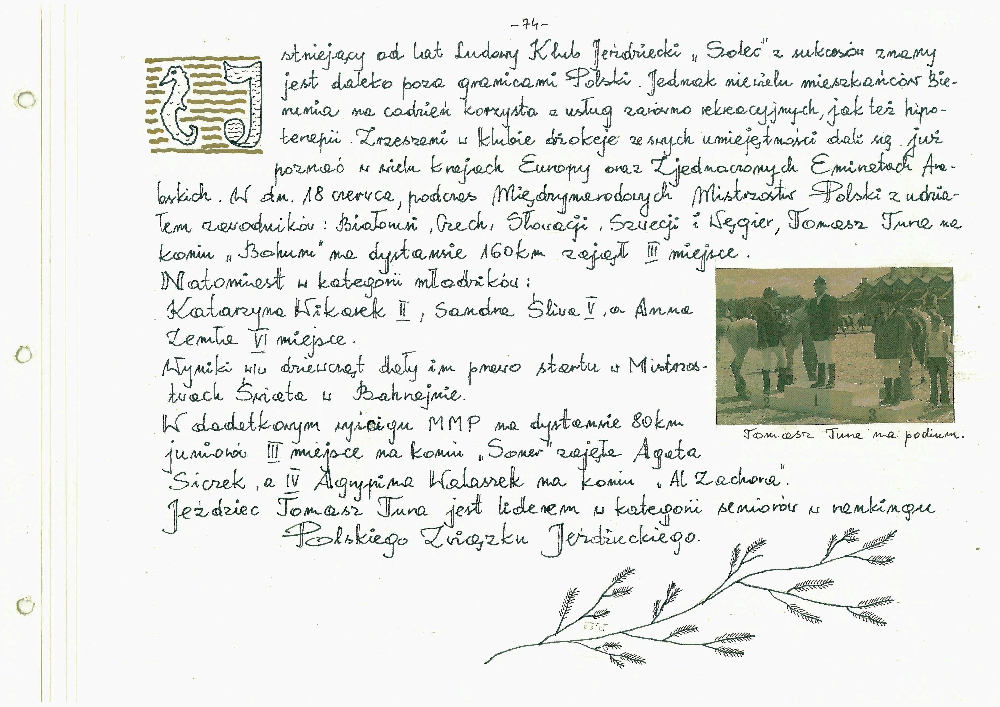 -74-
Istniejący od lat Ludowy Klub Jeździecki „Solec" z sukcesów znany
jest daleko poza granicami Polski. Jednak niewielu mieszkańców Bie-
runia na codzień korzysta z usług zarówno rekreacyjnych, jak też hipo-
terapii. Zrzeszeni w klubie dżokeje ze swych umiejętności dali się już
poznać w wielu krajach Europy oraz Zjednoczonych Emiratach Ara-
bskich. W dn. 18 czerwca, podczas Międzynarodowych Mistrzostw Polski z udzia-
łem zawodników: Białorusi, Czech, Słowacji, Szwecji i Węgier, Tomasz Tura na
koniu „Bohun" na dystansie 160km zajął III miejsce.
Natomiast w kategorii młodzików:
Katarzyna Wikarek II, Sandra Śliwa V, a Anna
Zemła VI miejsce.
Wyniki w/w dziewcząt dały im prawo startu w Mistrzos-
twach Świata w Bahrajnie.
W dodatkowym wyścigu MMP na dystansie 80km
juniorów III miejsce na koniu „Soner" zajęła Agata
Siczek, a IV Agrypina Walaszek na koniu „Al Zachara".
Jeździec Tomasz Tura jest liderem w kategorii seniorów w rankingu
Polskiego Związku Jeździeckiego.
Tomasz Tura na podium.